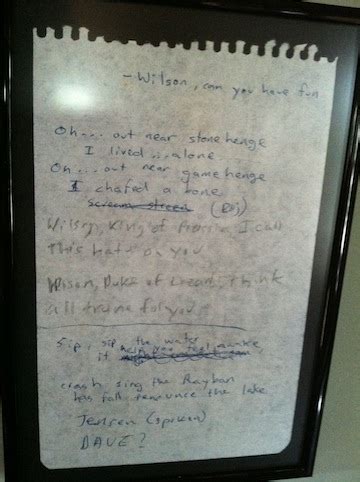 - Wilson, can you have fun
Oh... out near stonehenge
I lived ... alone
Oh... out near gamehenge
I chafed a bone
(Boj)
Wilson, King of Prussia, I call
This hate on you
Wilson, Duke of Lizards, I think
all true for you
Sip, sip the water
help you feel awake
it
crash sing the Rayban
has fall renounce the lake
Jensen (spoken)
DAVE?